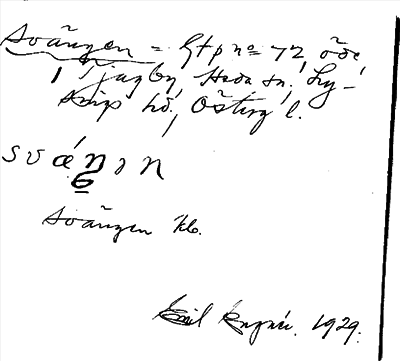 Svängen = Gtp nº 72, öde
i Tjagby, Heda sn. Ly-
sings hd., Östergl.
svǽŋən
6
Svängen kb.
Emil 1929.